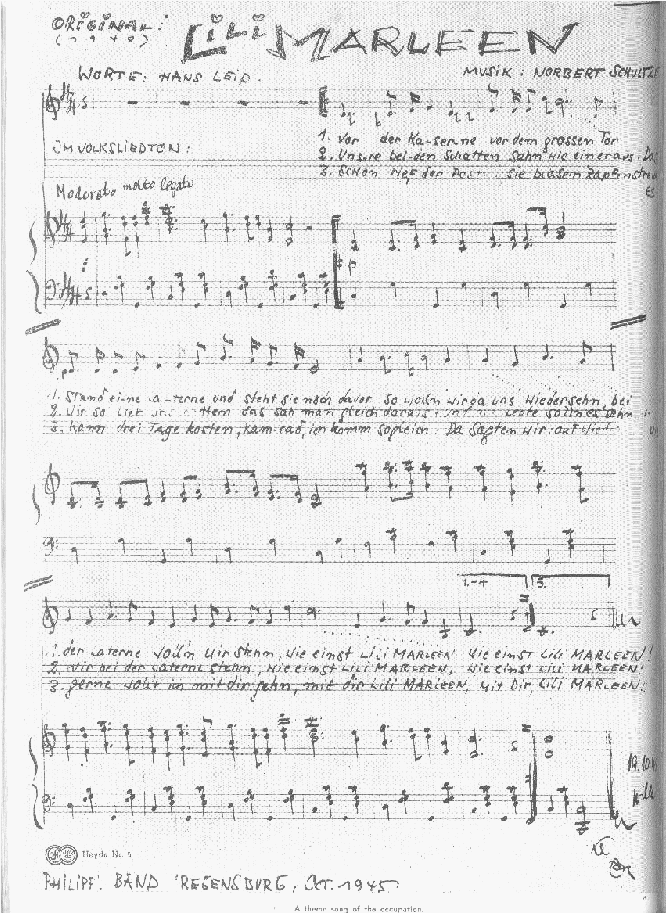 ORIGINAL:
LiLi MARLEEN
WORTE: HANS LEIP.
MUSIK: NORBERT SCHULTZE
IM VOLKSLIEDTON:
1. Vor der Kaserne vor dem grossen Tor
2. Unsre bei-den Schatten Sahn wie einer aus. Da
3. Schon rief der Post Sie blasen Zapfenstreich
Es
Moderato molto legato
1. Stand ei-ne La-terne und steht sie noch davor So wolln wir da uns Wiedersehn, bei
2. Wir so Lieb uns hatten Das sah man gleich daraus Leute sollnes Sehn
3. kann drei Tage kosten, kam-rad, ich komm sogleich Da Sagten wir auf Wied
1.-4 5.
1. der Laterne wolln Wir Stehn, Wie einst LiLi MARLEEN Wie einst LiLi MARLEEN!
2. wir bei der Laterne stehn, Wie einst LiLi MARLEEN, Wie einst LiLi MARLEEN!
3. gerne wollt ich mit dir gehn, mit dir LiLi MARLEEN, Mit Dir LiLi MARLEEN!
Haydn Nr. 5
PHILIPP'. BAND REGENSBURG, OCT. 1945
A theme song of the occupation.